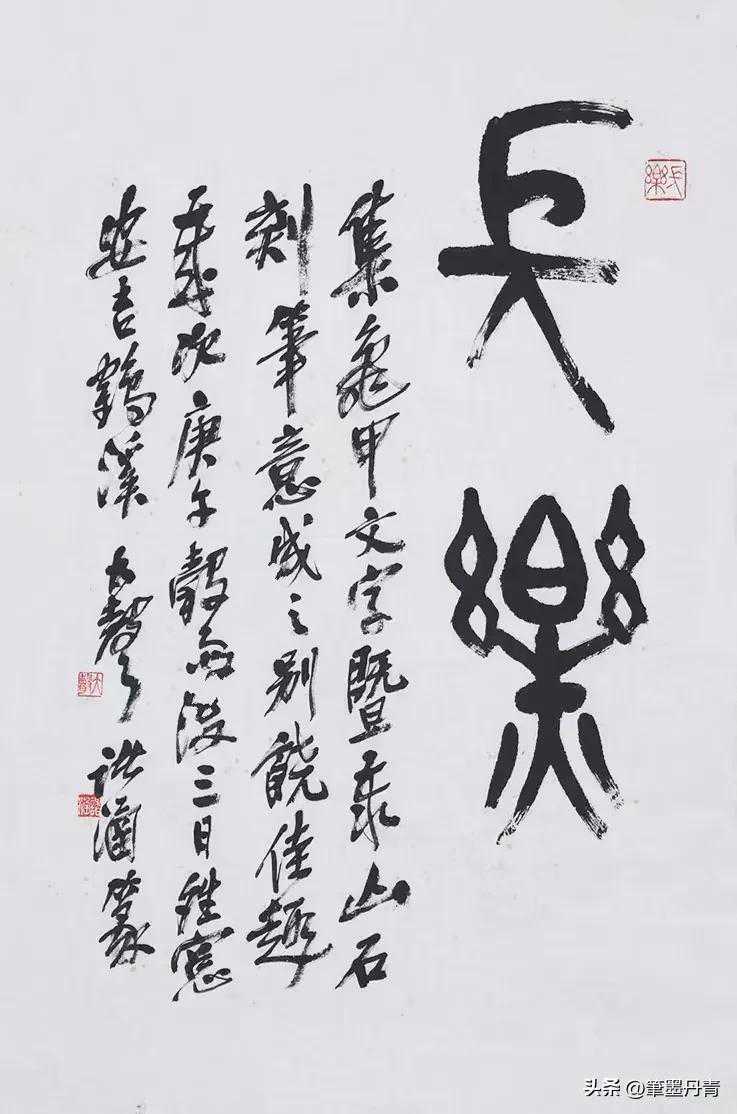 長樂
集龜甲文字暨泰山石
刻筆意成之別饒佳趣
歲次庚午穀雨後三日
安吉鶴溪大聲諸涵篆
头条 @筆墨丹青